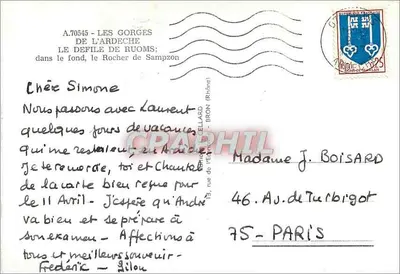 A.70545 - LES GORGES
DE L'ARDECHE
LE DEFILE DE RUOMS;
dans le fond, le Rocher de Sampzon
Chère Simone
Nous passons avec Laurent
quelques jours de vacances
qui me restaient, en Ardèche.
Je te remercie, toi et Chantal
de la carte bien reçue pour
le 11 Avril - J'espère qu'André
va bien et se prépare à
son examen - Affections à
tous et meilleurs souvenirs -
Frédéric - Lilou
Madame J. BOISARD
46. Av. de Turbigot
75 - PARIS
CPAPHIL
BRON (Rhône)